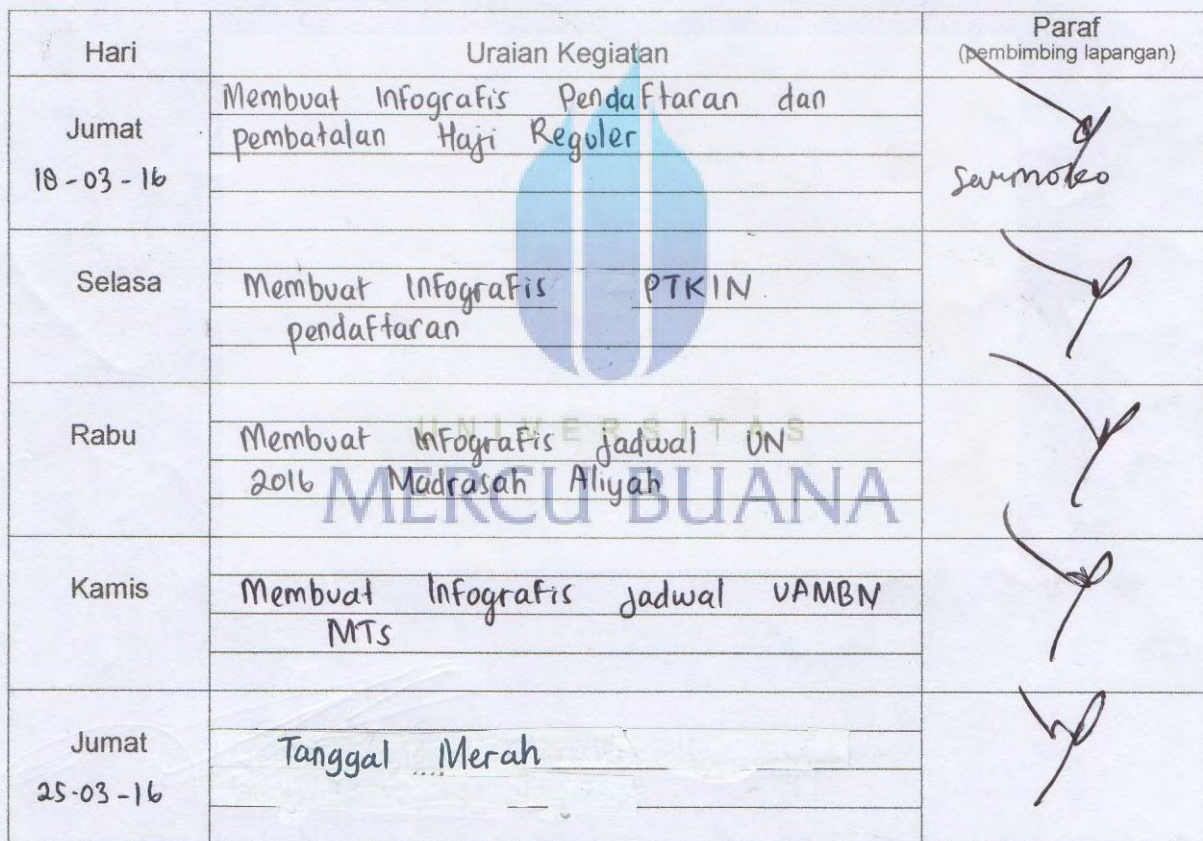 Hari Uraian Kegiatan Paraf
(pembimbing lapangan)
Jumat
18-03-16
Membuat Infografis Pendaftaran dan
pembatalan Haji Reguler
Selasa
Membuat Infografis PTKIN
pendaftaran
UNIVERSITAS
MERCU BUANA
Rabu
Membuat Infografis jadwal UN
2016 Madrasah Aliyah
Kamis
Membuat Infografis jadwal UAMBN
MTs
Jumat
25-03-16
Tanggal Merah